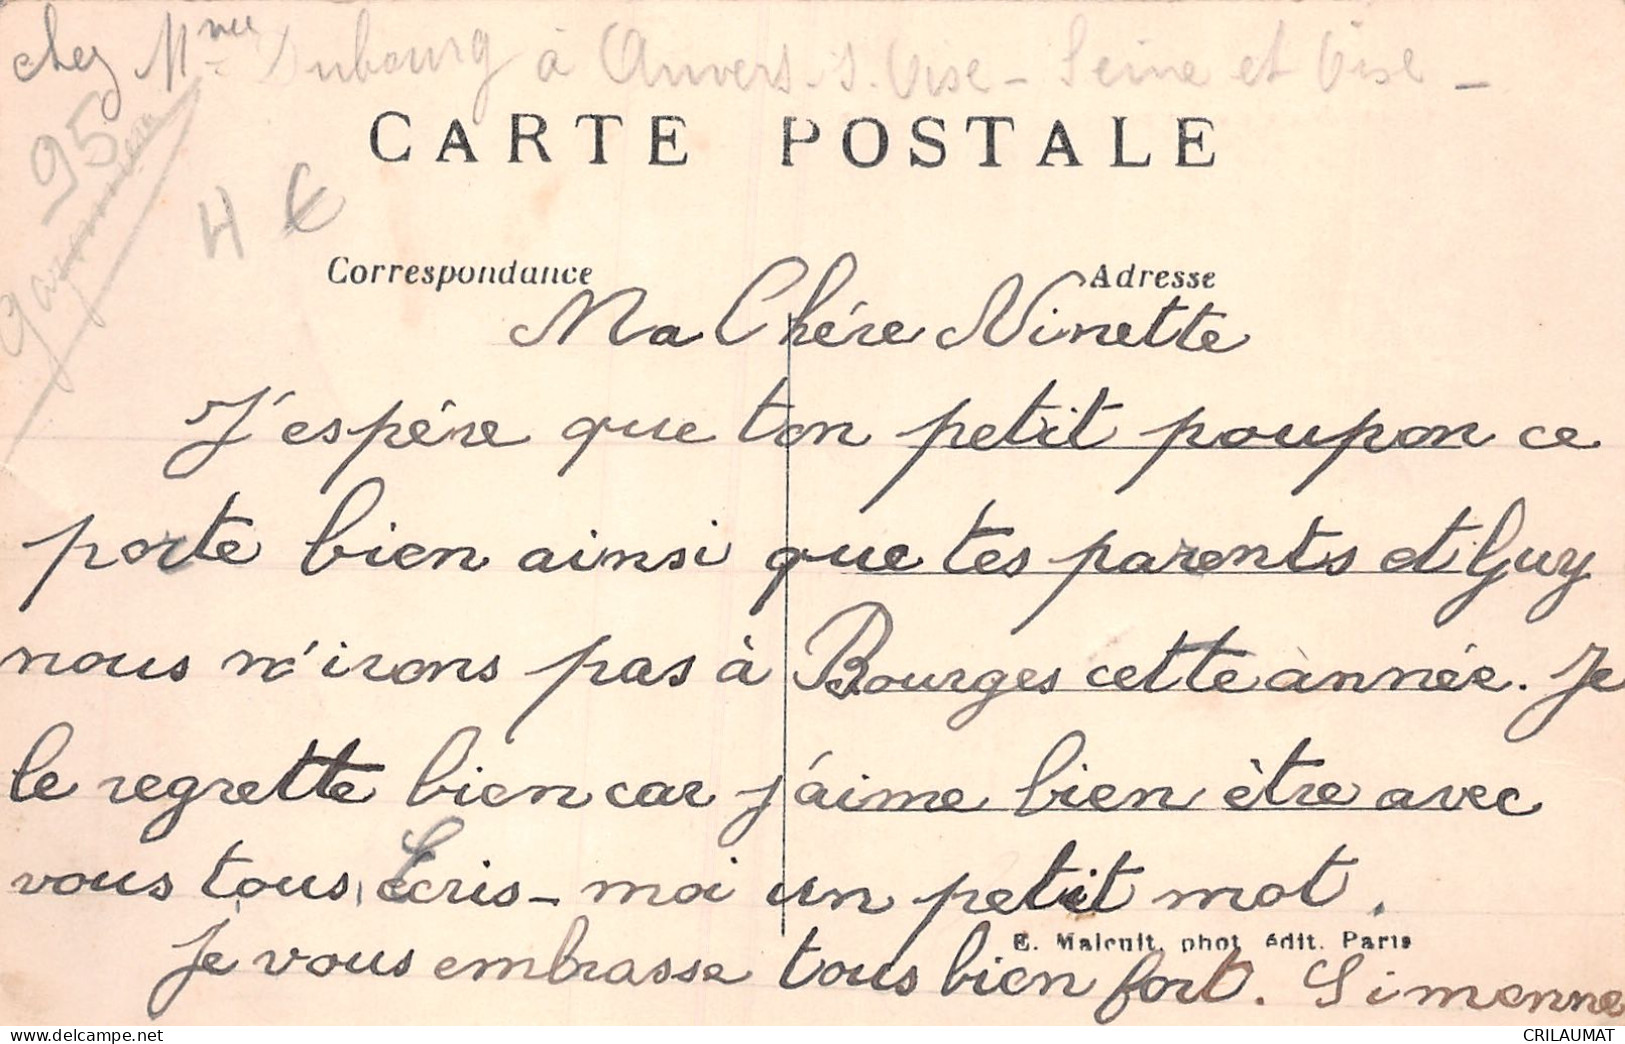 chez Mme Dubourg à Anvers. s. Oise - Seine et Oise -
95
4 €
CARTE POSTALE
Correspondance Adresse
Ma Chére Ninette
J'espére que ton petit poupon ce
porte bien ainsi que tes parents et Guy
nous n'irons pas à Bourges cette année. Je
le regrette bien car j'aime bien être avec
vous tous, Ecris-moi un petit mot.
E. Malcuit, phot édit. Paris
Je vous embrasse tous bien fort. Simonne
CRILAUMAT